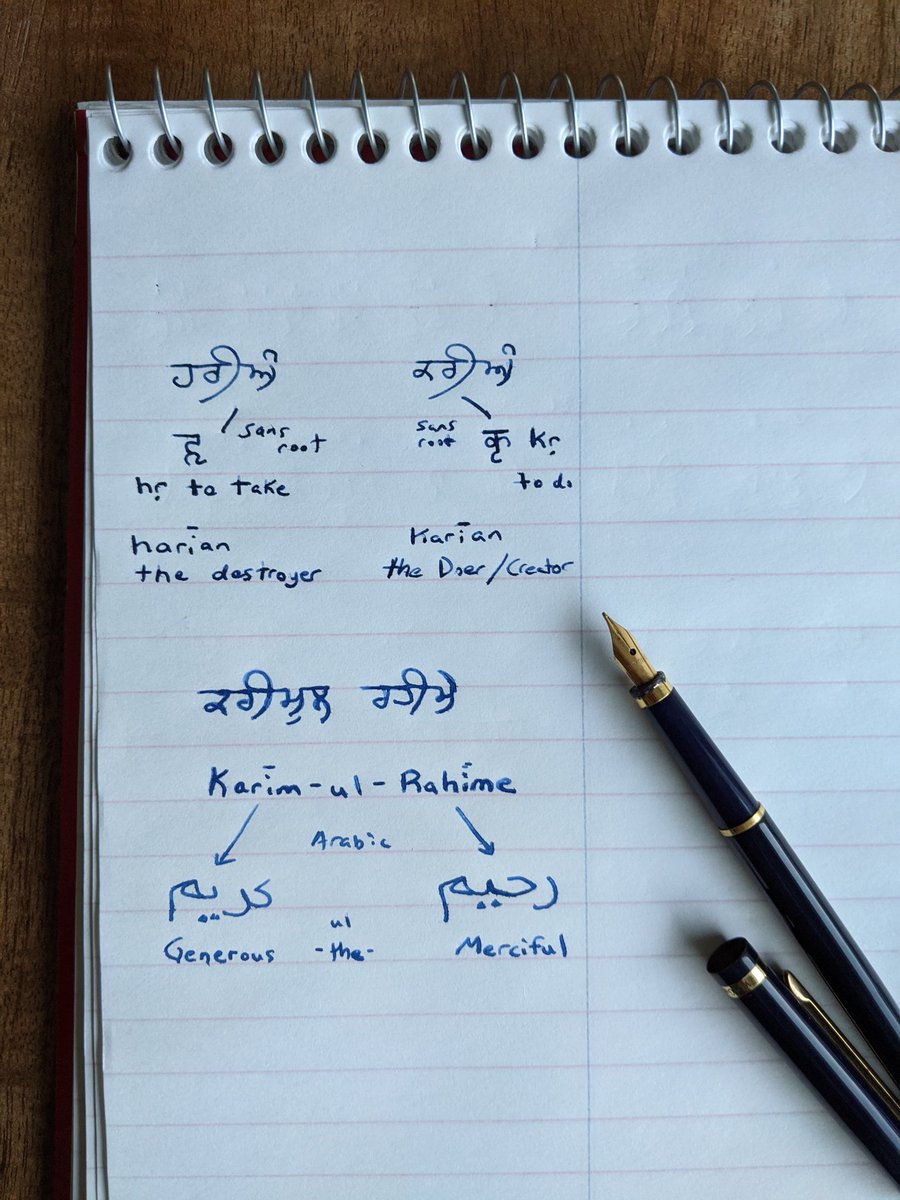 ਹਰੀਅੰ ਕਰੀਅੰ
हृ sans root sans root कृ kṛ
hṛ to take to do
harīan Karīan
the destroyer the Doer/Creator
ਕਰੀਮੁਲ ਰਹੀਮੈ
Karīm-ul-Rahīme
Arabic
كريم رحيم
ul
Generous -the- Merciful